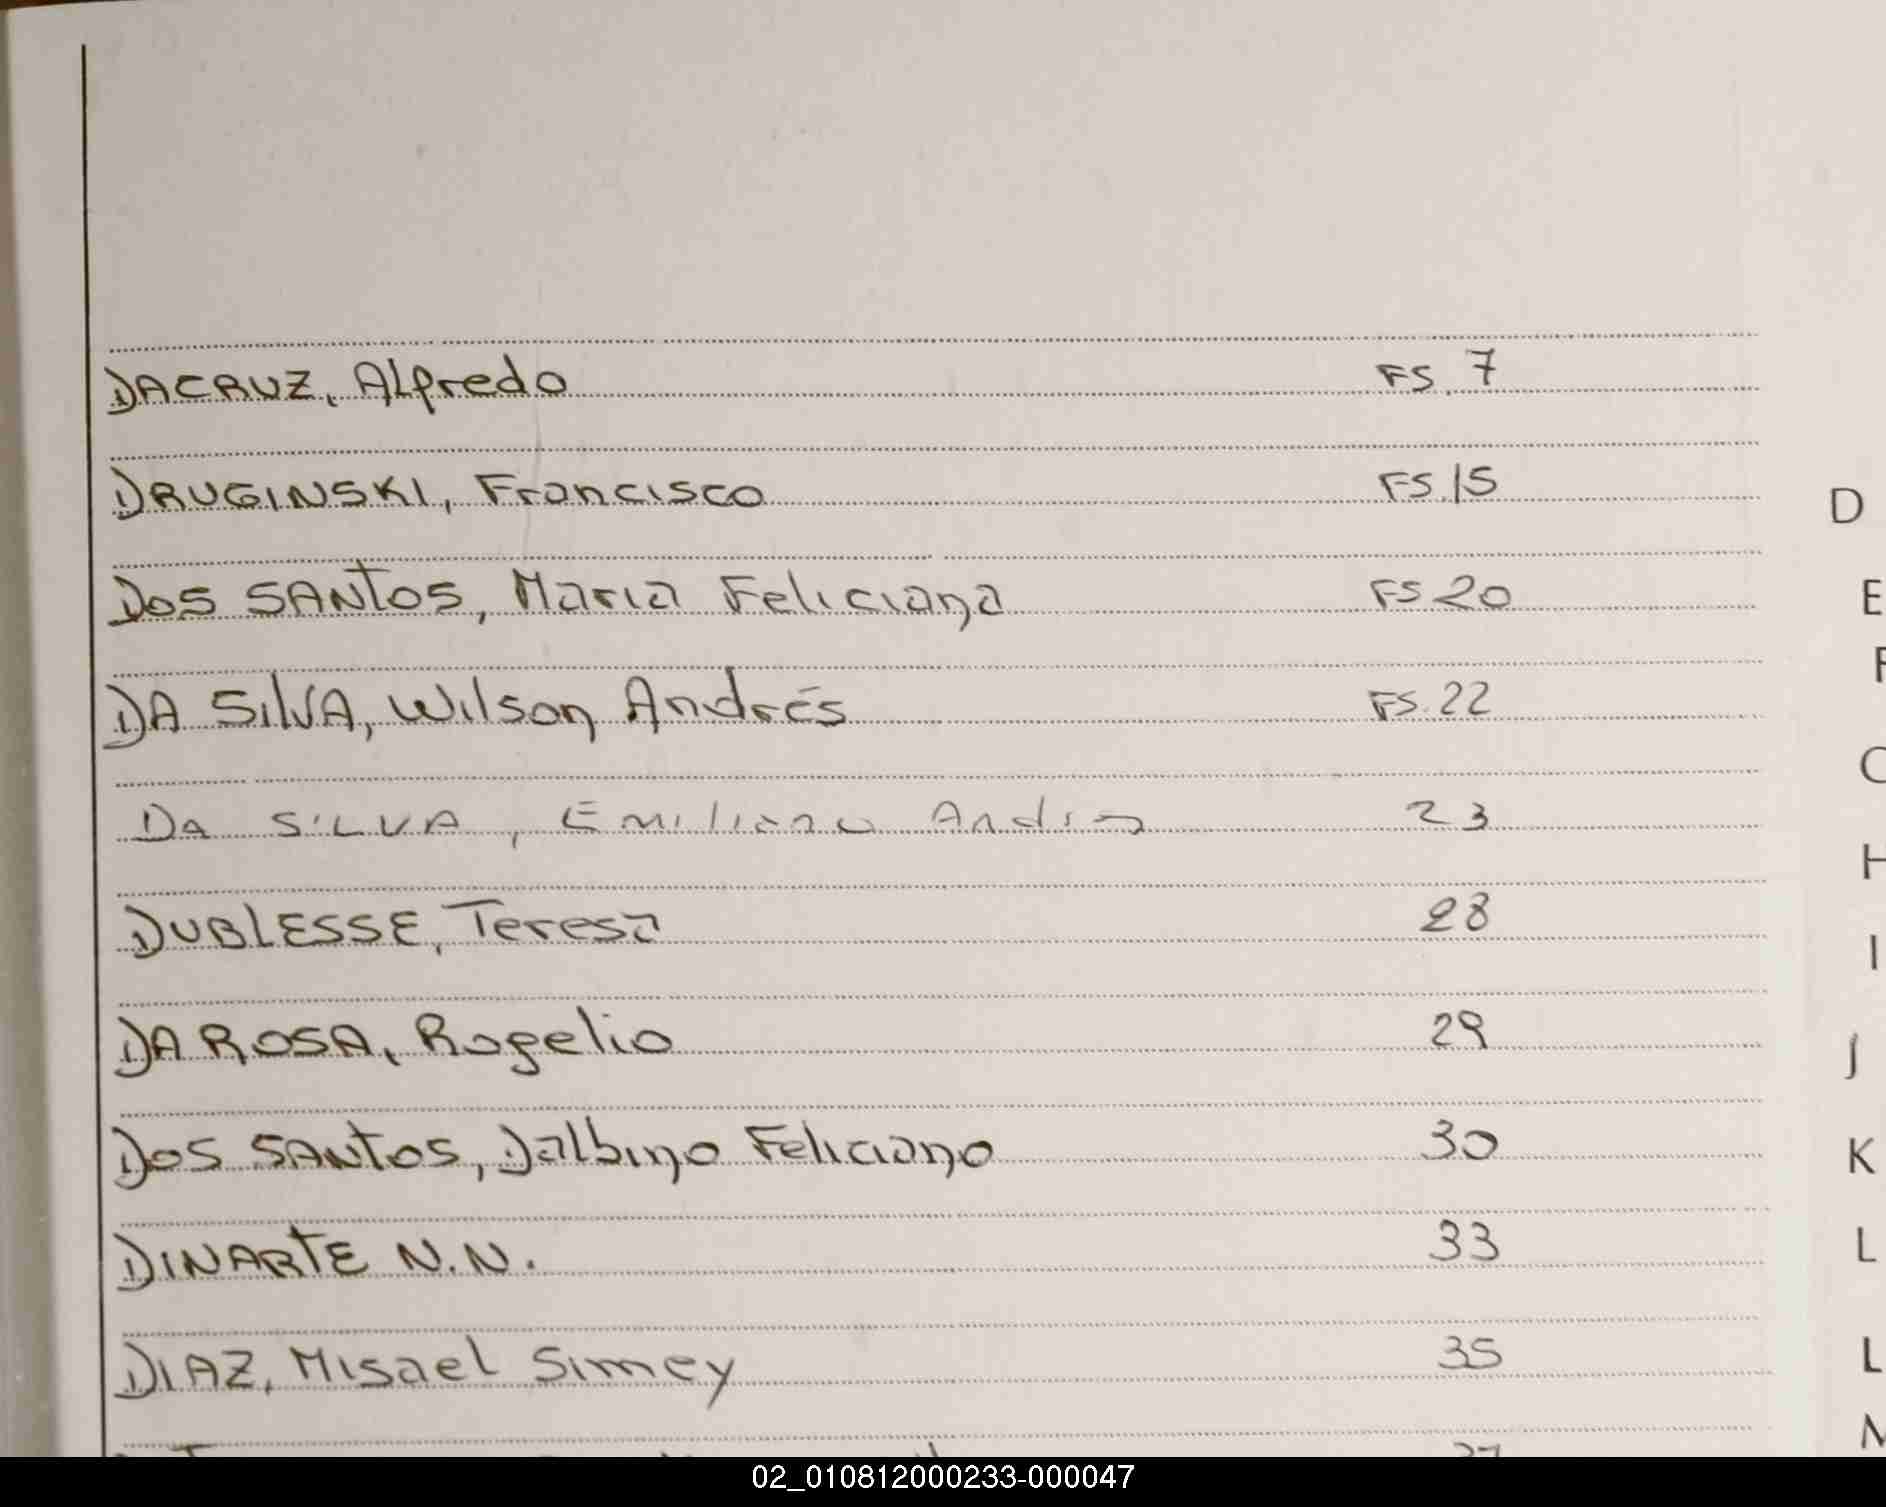 DACRUZ, Alfredo FS. 7
DRUGINSKI, Francisco FS. 15
DOS SANTOS, Maria Feliciana FS 20
DA SILVA, Wilson Andrés FS. 22
DA SILVA, Emiliano Andres 23
DUBLESSE, Teresa 28
DA ROSA, Rogelio 29
DOS SANTOS, Dalbino Feliciano 30
DINARTE N.N. 33
DIAZ, Misael Simey 35
D
E
F
H
I
J
K
L
L
M
02_010812000233-000047